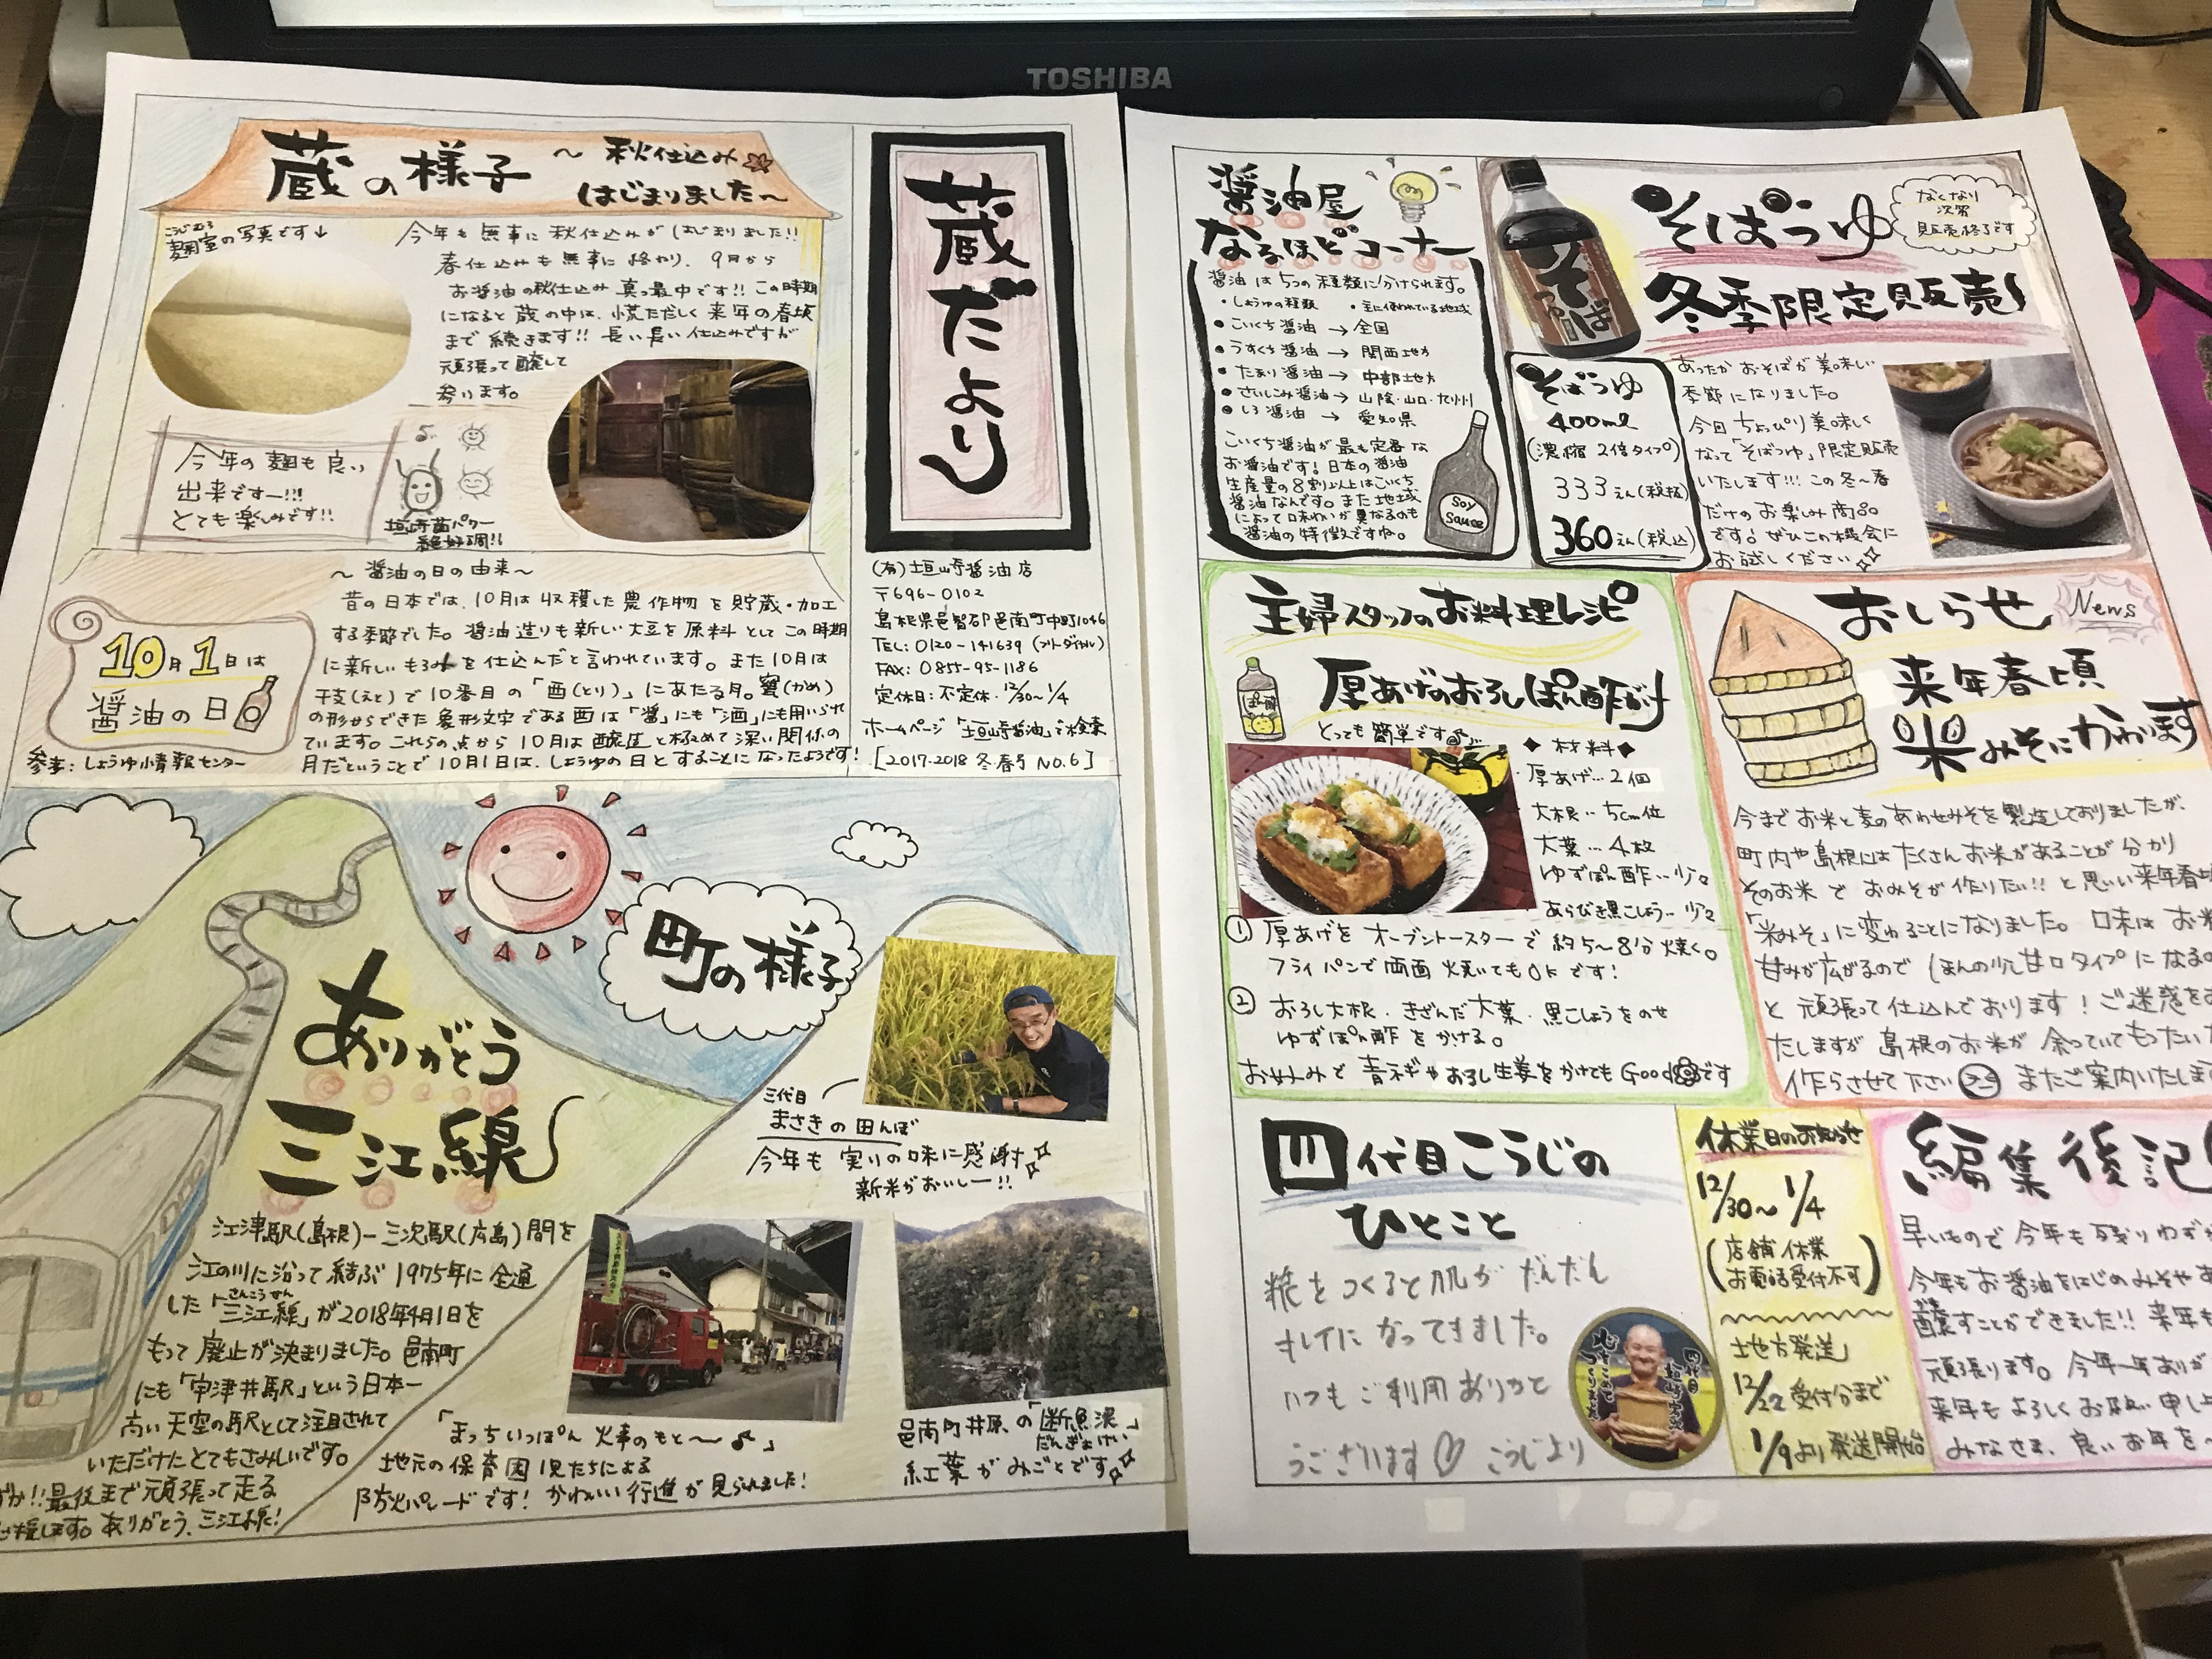 TOSHIBA
蔵の様子
～ 秋仕込み
はじまりました～
こうじむろ
麹室の写真です↓
今年も無事に秋仕込みがはじまりました!!
春仕込みも無事に終わり、9月から
お醤油の秋仕込み真っ最中です!! この時期
になると蔵の中は、慌ただしく来年の春頃
まで続きます!! 長い長い仕込みですが
頑張って醸して
参ります。
今年の麹も良い
出来ですー!!!
とても楽しみです!!
垣崎菌パワー
絶好調!!
蔵だより
(有)垣崎醤油店
〒696-0102
島根県邑智郡邑南町中野1046
TEL: 0120-141639 (フリーダイヤル)
FAX: 0855-95-1186
定休日:不定休・12/30～1/4
ホームページ「垣崎醤油」で検索
[2017-2018 冬春号 NO.6]
～ 醤油の日の由来～
10月1日は
醤油の日
参考:しょうゆ情報センター
昔の日本では、10月は収穫した農作物を貯蔵・加工
する季節でした。醤油造りも新しい大豆を原料としてこの時期
に新しいもろみを仕込んだと言われています。また10月は
干支(えと)で10番目の「酉(とり)」にあたる月。甕(かめ)
の形からできた象形文字である酉は「醤」にも「酒」にも用いられ
ています。これらの点から10月は醸造と極めて深い関係の
月だということで10月1日は、しょうゆの日とすることになったようです!
町の様子
ありがとう
三江線
江津駅(島根)－三次駅(広島)間を
江の川に沿って結ぶ1975年に全通
さんこうせん
した「三江線」が2018年4月1日を
もって廃止が決まりました。邑南町
にも「宇津井駅」という日本一
高い天空の駅として注目されて
いただけにとてもさみしいです。
ずか!!最後まで頑張って走る
します。ありがとう、三江線!
三代目
まさきの田んぼ
今年も実りの味に感謝
新米がおいしー!!
「まっちいっぽん火事のもと～♪」
地元の保育園児たちによる
防火パレードです! かわいい行進が見られました!
邑南町井原の「断魚渓」
だんぎょけい
紅葉がみごとです
醤油屋
なるほどコーナー
醤油は5つの種類に分けられます。
・しょうゆの種類 ・主に使われている地域
・こいくち醤油→全国
・うすくち醤油→関西地方
・たまり醤油→中部地方
・さいしこみ醤油→山陰・山口・九州
・しろ醤油→愛知県
こいくち醤油が最も定番な
お醤油です! 日本の醤油
生産量の8割以上はこいくち
醤油なんです。また地域
によって味わいが異なるのも
醤油の特徴ですね。
Soy
Sauce
そばつゆ
冬季限定販売!
なくなり
次第
販売終了です
そばつゆ
そばつゆ
400ml
(濃縮2倍タイプ)
333えん(税抜)
360えん(税込)
あったかおそばが美味しい
季節になりました。
今回ちょっぴり美味しく
なって「そばつゆ」限定販売
いたします!!! この冬～春
だけのお楽しみ商品
です! ぜひこの機会に
お試しください
主婦スタッフのお料理レシピ
厚あげのおろしぽん酢がけ
とっても簡単です♪
◆材料◆
厚あげ…2個
大根…5cm位
大葉…4枚
ゆずぽん酢…少々
あらびき黒こしょう…少々
①厚あげをオーブントースターで約5～8分焼く。
フライパンで両面焼いてもOKです!
②おろし大根・きざんだ大葉・黒こしょうをのせ
ゆずぽん酢をかける。
お好みで青ネギやおろし生姜をかけてもGoodです
おしらせ
News
来年春頃
米みそにかわります
今までお米と麦のあわせみそを製造しておりましたが、
町内や島根にはたくさんお米があることが分かり
そのお米でおみそが作りたい!! と思い来年春頃
「米みそ」に変わることになりました。口味はお米
甘みが広がるのでほんの少し甘口タイプになるの
と頑張って仕込んでおります! ご迷惑をお
たしますが島根のお米が余っていてもったい
作らさせて下さい またご案内いたしま
四代目こうじの
ひとこと
糀をつくると肌がだんだん
キレイになってきました。
いつもご利用ありがと
うございます♡ こうじより
四代目
休業日のお知らせ
12/30～1/4
(店舗休業
お電話受付不可)
「地方発送」
12/22受付分まで
1/9より発送開始
編集後記
早いもので今年も残りわず
今年もお醤油をはじめみそや
醸すことができました!! 来年も
頑張ります。今年一年ありが
来年もよろしくお願い申し上
みなさま、良いお年を～